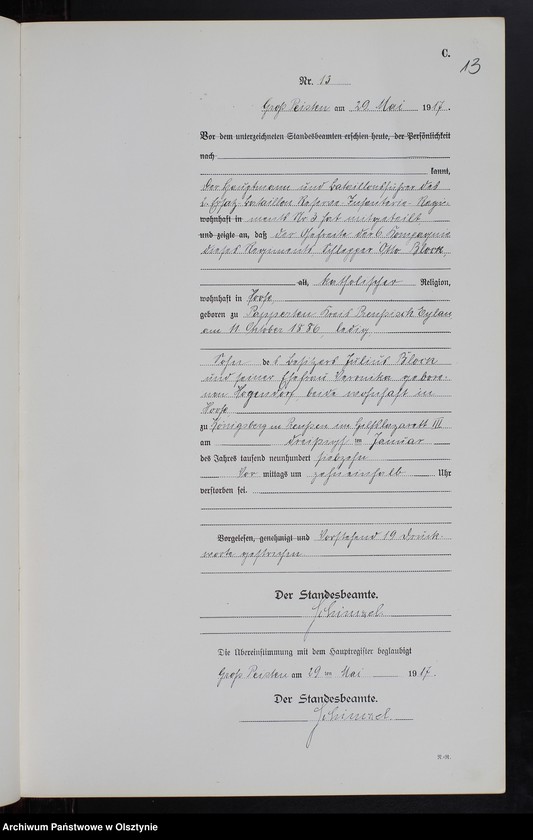 C.
13
Nr. 13
Groß Peisten am 29 Mai 1917.
Vor dem unterzeichneten Standesbeamten erschien heute, der Persönlichkeit
nach
kannt,
Der Hauptmann und Bataillonsführer des
Ersatz Bataillon Reserve Infanterie Regi-
wohnhaft in ments Nr 3 hat mitgeteilt
und zeigte an, daß der Gefreite der 6 Kompagnie
dieses Regiments Otto Block,
alt, katholischer Religion,
wohnhaft in
geboren zu Kreis Preußisch Eylau
am 11 Oktober 1886, ledig
Sohn des Besitzers Julius Block
und seiner Ehefrau Veronika gebore-
nen beide wohnhaft in
zu Königsberg in Preußen im Hilfslazarett III
am dreißigsten Januar
des Jahres tausend neunhundert siebzehn
Vor mittags um zehneinhalb Uhr
verstorben sei.
Vorgelesen, genehmigt und Vorstehend 19 Druck-
worte gestrichen
Der Standesbeamte.
Schimzel
Die Übereinstimmung mit dem Hauptregister beglaubigt
Groß Peisten am 29 ten Mai 1917.
Der Standesbeamte.
Schimzel.
Archiwum Państwowe w Olsztynie